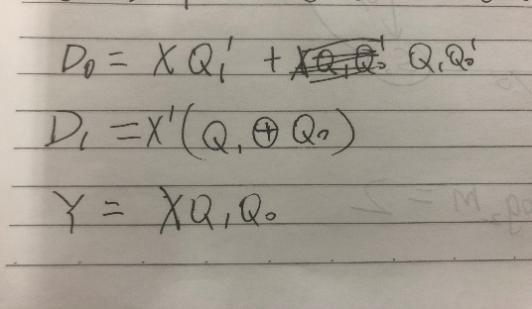 D₀ = XQ₁' + Q₁Q₀'
D₁ = X'(Q₁ ⊕ Q₀)
Y = XQ₁Q₀